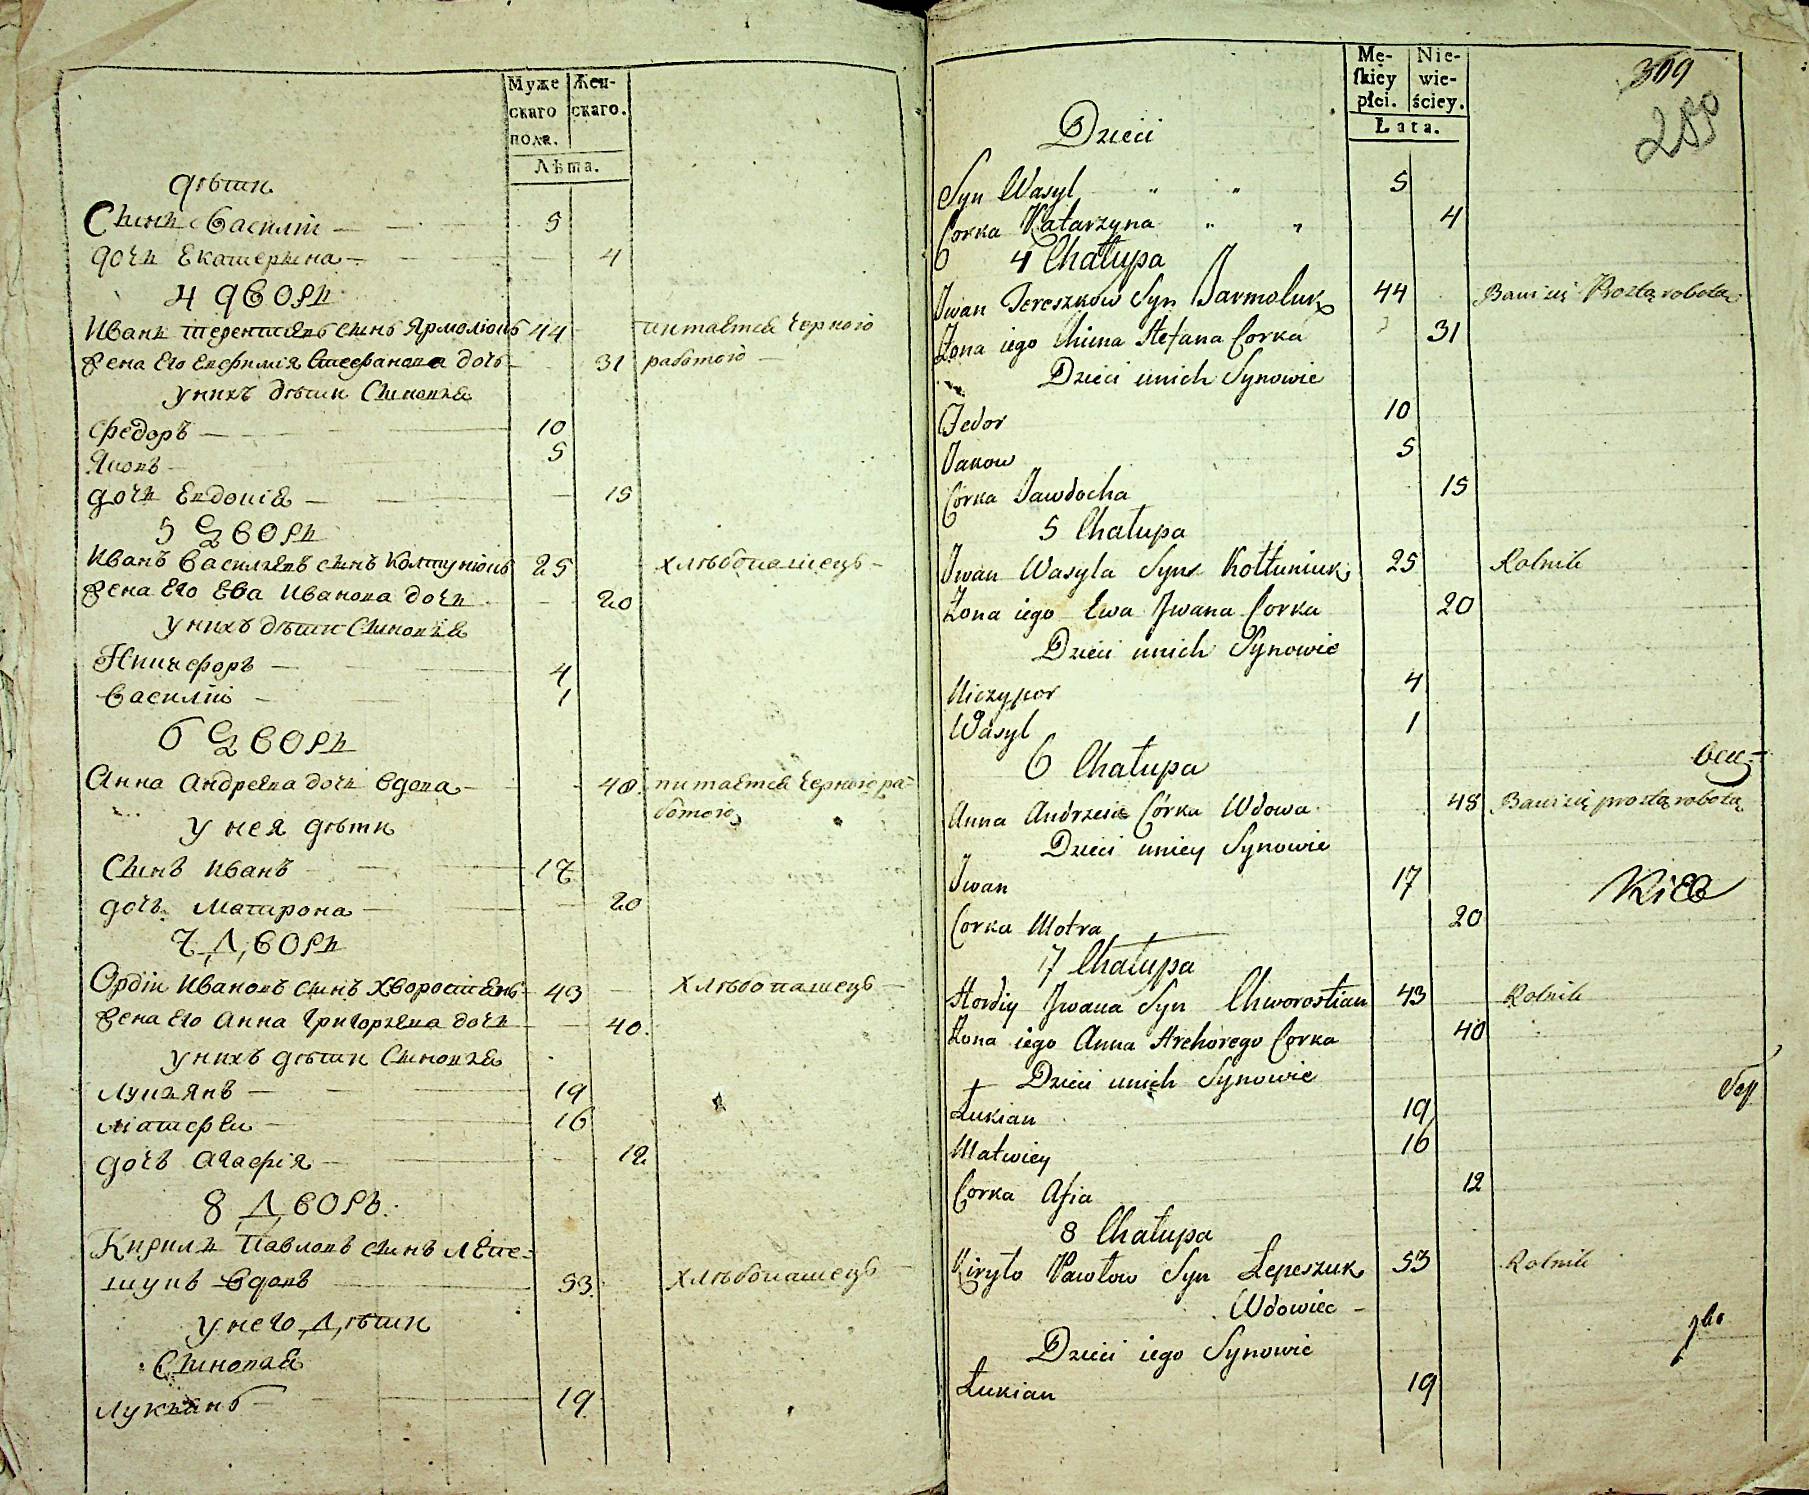 Муже
скаго
пола.
Жен-
скаго.
Лѣта.
дѣти
Сынъ Василій 5
дочь Екатерина 4
4 дворъ
Иванъ Терентіевъ сынъ Ярмолюкъ 44 питается чорною
Жена Его Евфимія Стефанова дочь 31 работою
у нихъ дѣти Сыновья
Федоръ 10
Яковъ 5
дочь Евдокія 15
5 дворъ
Иванъ Васильевъ сынъ Колтунюкъ 25 хлѣбопашецъ
Жена Его Ева Иванова дочь 20
у нихъ дѣти Сыновья
Никифоръ 4
Василій 1
6 дворъ
Анна Андреева дочь вдова 48 питается чорною ра-
ботою
у нея дѣти
Сынъ Иванъ 17
дочь Матрона 20
7 дворъ
Ордій Ивановъ сынъ Хворостянъ 43 хлѣбопашецъ
Жена Его Анна Григорьева дочь 40
у нихъ дѣти Сыновья
Лукьянъ 19
Матфей 16
дочь Агафія 12
8 дворъ
Кирилъ Павловъ сынъ Лепе-
шукъ вдовъ 53 хлѣбопашецъ
у него дѣти
Сыновья
Лукьянъ 19
Mę-
skiey
płci.
Nie-
wie-
ściey.
Lata.
309
Dzieci
Syn Wasyl " " 5
Corka Katarzyna " " 4
4 Chałupa
Jwan Tereszkow Syn Jarmoluk 44 Bawi się Prostą robotą
Żona iego Chima Stefana Corka 31
Dzieci unich Synowie
Fedor 10
Jakow 5
Córka Jawdocha 15
5 Chałupa
Jwan Wasyla Syn Kołtuniuk 25 Rolnik
Żona iego Ewa Jwana Corka 20
Dzieci unich Synowie
Niczypor 4
Wasyl 1
6 Chałupa
Anna Andrzeia Córka Wdowa 48 Bawi się prostą robotą
Dzieci uniey Synowie
Jwan 17
Corka Motra 20
7 Chałupa
Hordiy Jwana Syn Chworostian 43 Rolnik
Żona iego Anna Hrehorego Corka 40
Dzieci unich Synowie
Łukian 19
Matwiey 16
Corka Afia 12
8 Chałupa
Kiryło Pawłow Syn Lepeszuk 53 Rolnik
Wdowiec
Dzieci iego Synowie
Łukian 19